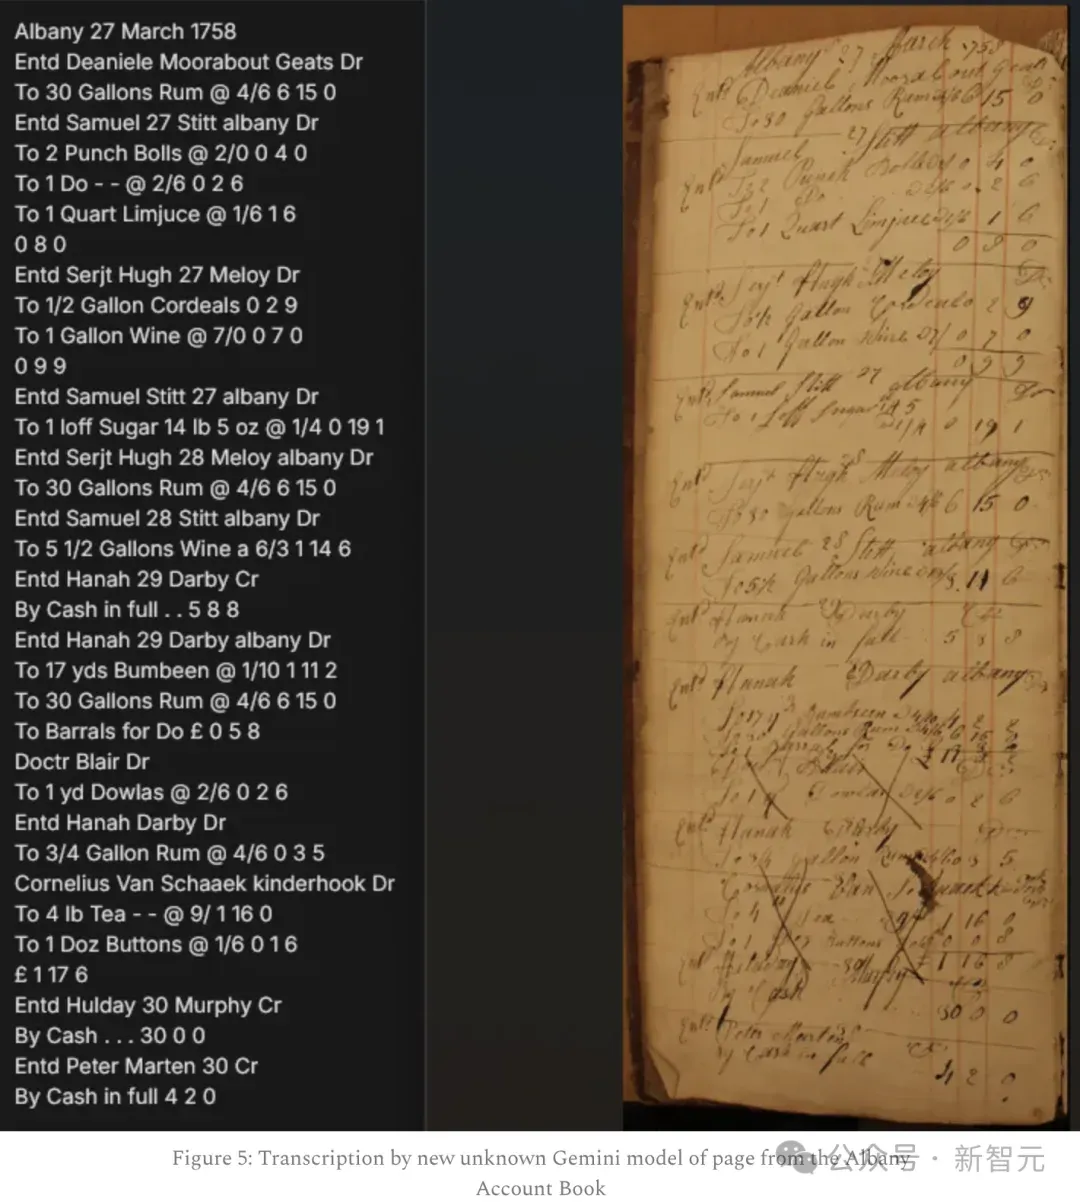 Albany 27 March 1758
Entd Deaniele Moorabout Geats Dr
To 30 Gallons Rum @ 4/6 6 15 0
Entd Samuel 27 Stitt albany Dr
To 2 Punch Bolls @ 2/0 0 4 0
To 1 Do - - @ 2/6 0 2 6
To 1 Quart Limjuce @ 1/6 1 6
0 8 0
Entd Serjt Hugh 27 Meloy Dr
To 1/2 Gallon Cordeals 0 2 9
To 1 Gallon Wine @ 7/0 0 7 0
0 9 9
Entd Samuel Stitt 27 albany Dr
To 1 loff Sugar 14 lb 5 oz @ 1/4 0 19 1
Entd Serjt Hugh 28 Meloy albany Dr
To 30 Gallons Rum @ 4/6 6 15 0
Entd Samuel 28 Stitt albany Dr
To 5 1/2 Gallons Wine a 6/3 1 14 6
Entd Hanah 29 Darby Cr
By Cash in full . . 5 8 8
Entd Hanah 29 Darby albany Dr
To 17 yds Bumbeen @ 1/10 1 11 2
To 30 Gallons Rum @ 4/6 6 15 0
To Barrals for Do £ 0 5 8
Doctr Blair Dr
To 1 yd Dowlas @ 2/6 0 2 6
Entd Hanah Darby Dr
To 3/4 Gallon Rum @ 4/6 0 3 5
Cornelius Van Schaaek kinderhook Dr
To 4 lb Tea - - @ 9/ 1 16 0
To 1 Doz Buttons @ 1/6 0 1 6
£ 1 17 6
Entd Hulday 30 Murphy Cr
By Cash . . . 30 0 0
Entd Peter Marten 30 Cr
By Cash in full 4 2 0
Albany 27 March 1758
Entd Deaniel Moorabout Geats
To 30 Gallons Rum 4/6 6 15 0
Entd Samuel 27 Stitt albany
To 2 Punch Bolls 0 4 0
To 1 Do 2/6 0 2 6
To 1 Quart Limjuce 1/6 1 6
0 8 0
Entd Serjt Hugh Meloy
Gallon Cordeals 2 9
To 1 Gallon Wine 7/ 0 7 0
0 9 9
Entd Samuel Stitt 27 albany Dr
To 1 Loff Sugar 14 5
1/4 0 19 1
Entd Serjt Hugh 28 Meloy albany
To 30 Gallons Rum 4/6 6 15 0
Entd Samuel 28 Stitt albany
Gallons Wine
Entd Hanah Darby
By Cash in full 5 8 8
Entd Hanah Darby albany
Gallons Rum
Blair
To 1 2/6 0 2 6
Entd Hanah Darby
To 3/4 gallon Rum 5
Cornelius Van
To 4 Tea 1 16 0
To 1 Buttons
£ 1 16 8
30 Murphy
By Cash
30 0 0
Entd Peter Marten 30
By Cash in full
4 2 0
Figure 5: Transcription by new unknown Gemini model of page from the Albany
Account Book
公众号 · 新智元